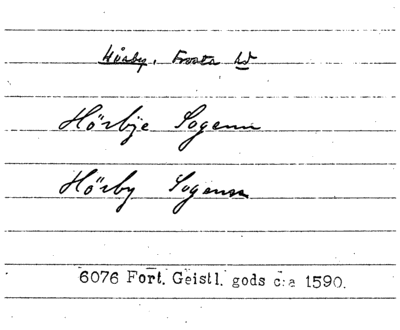 Hörby, Frosta hd
Hörbÿe Sogenn
Hörby Sogenn
6076 Fort. Geistl. gods c:a 1590.